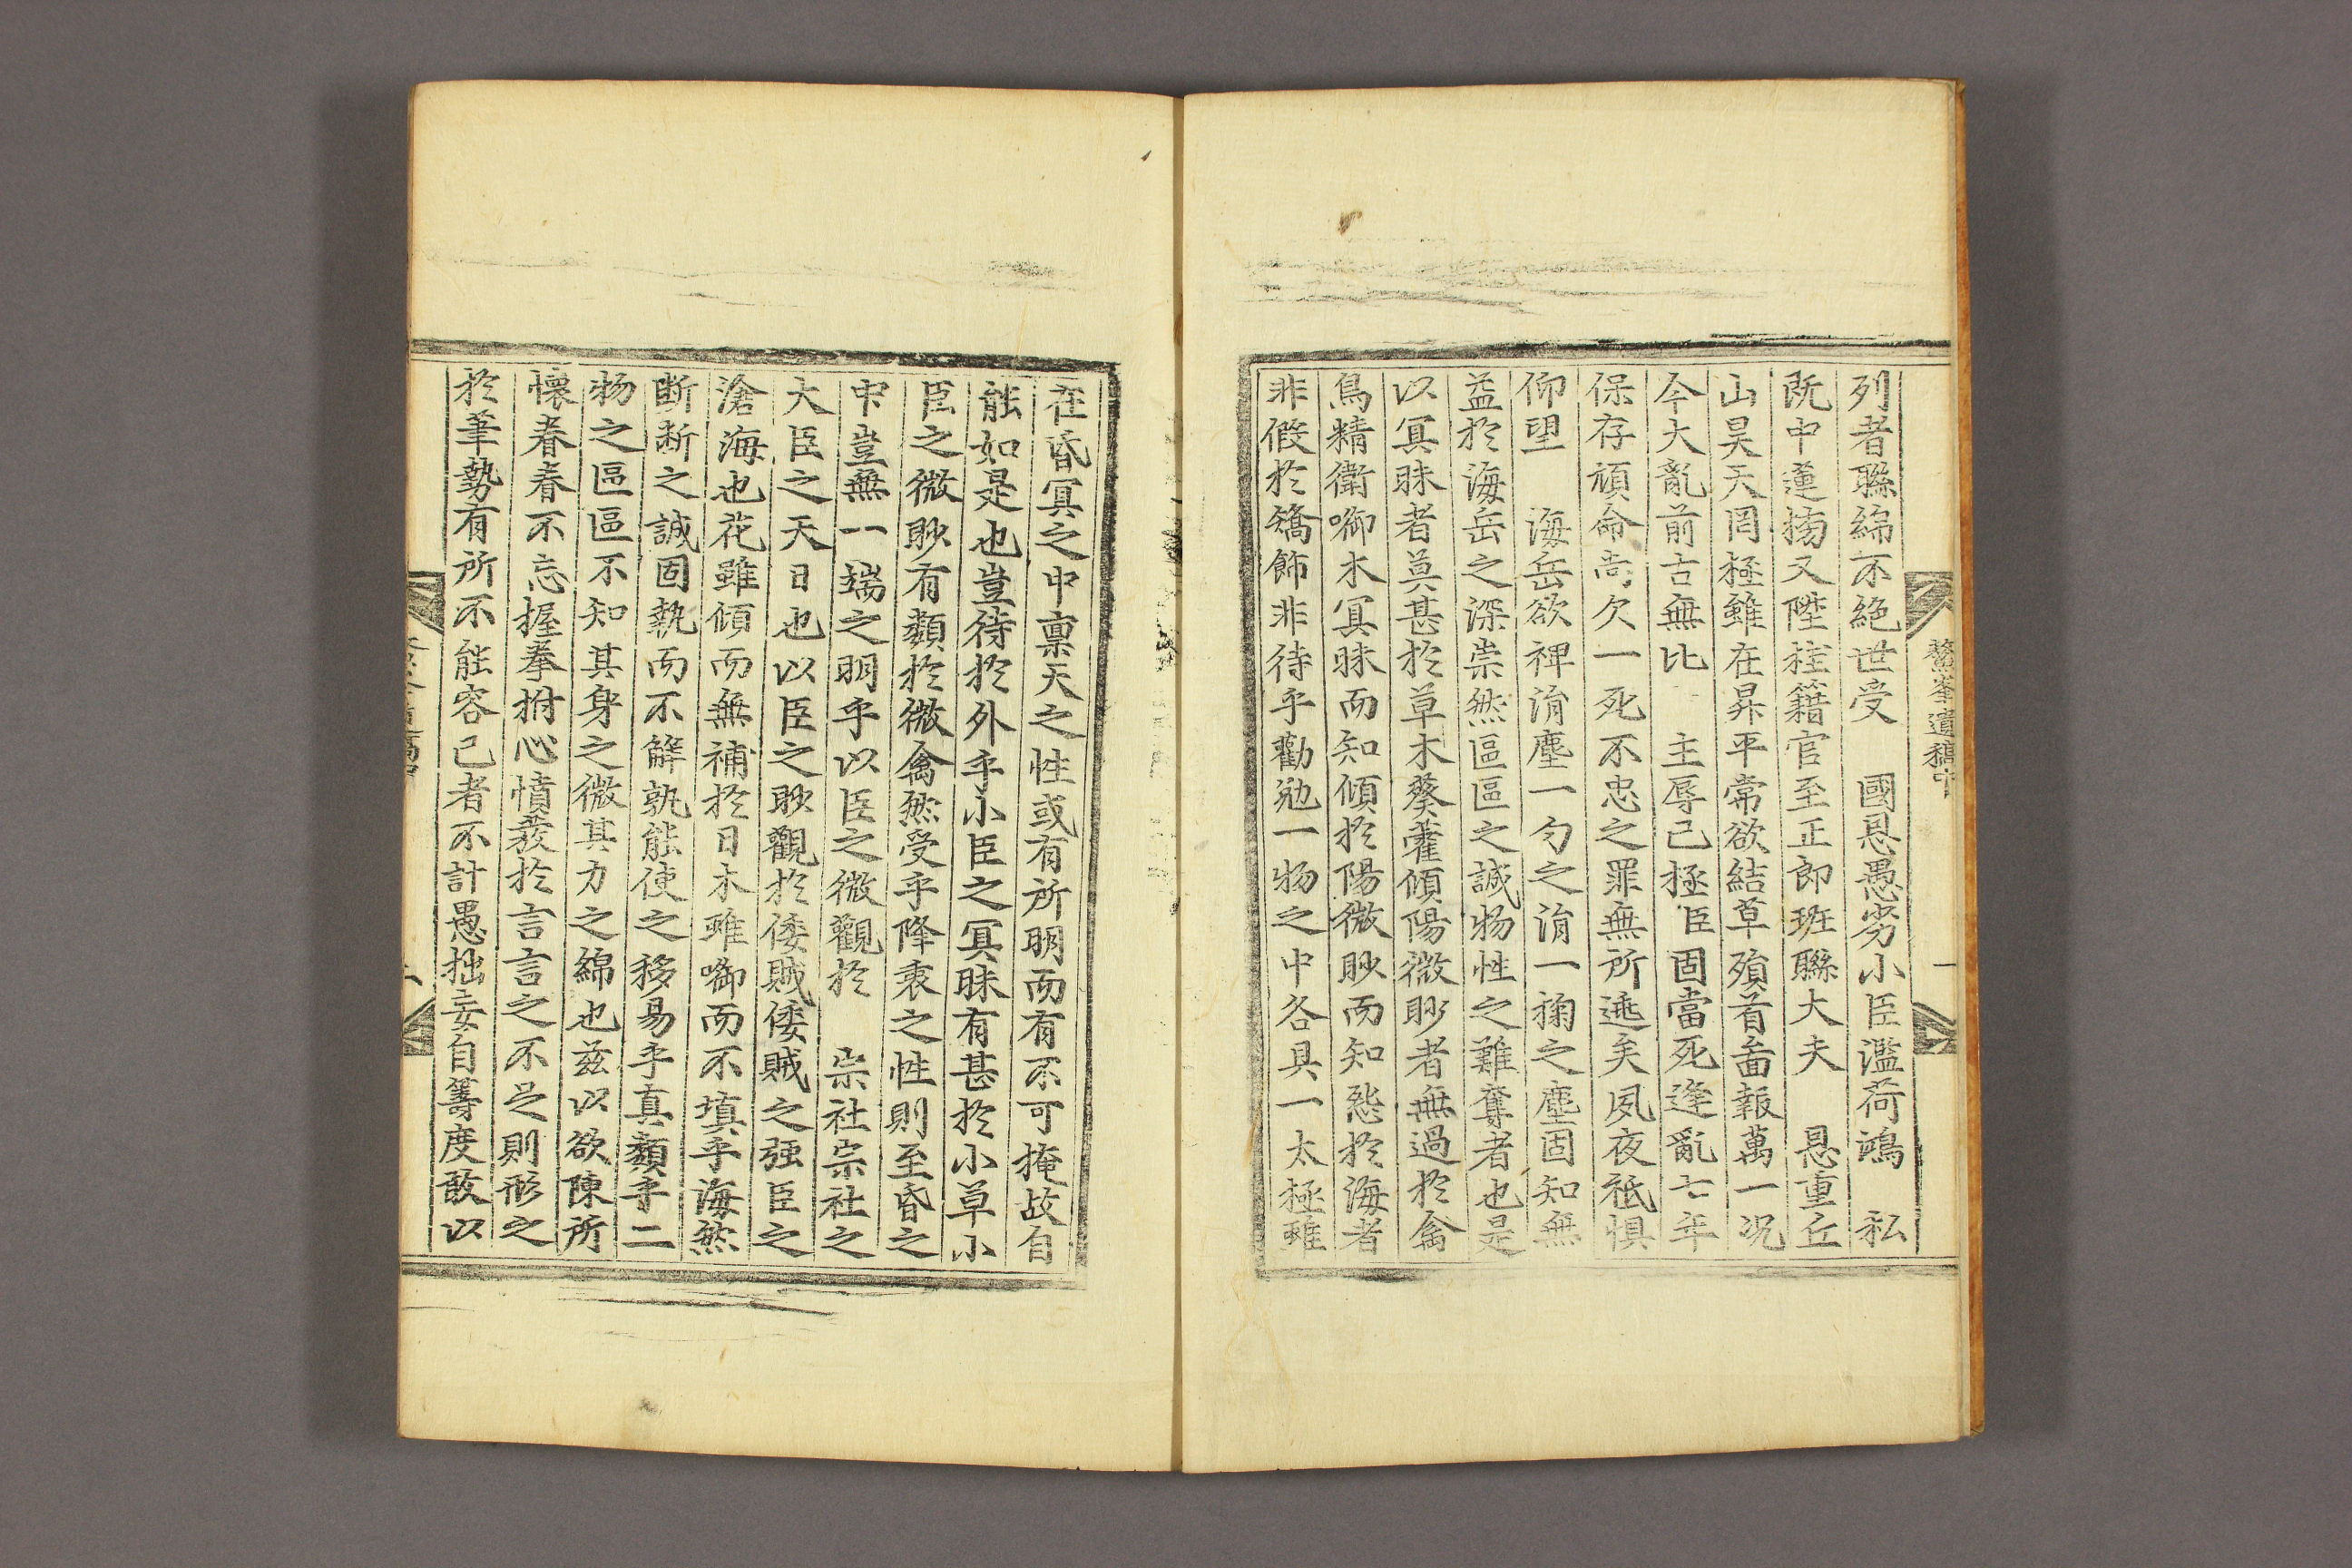 鰲峯遺稿中
一
列者聯綿不絕世受 國恩愚劣小臣濫荷鴻 私
既中蓮榜又陞桂籍官至正郎班聯大夫 恩重丘
山昊天罔極雖在昇平常欲結草殞首啚報萬一况
今大亂前古無比 主辱已極臣固當死逢亂七年
保存頑命尚欠一死不忠之罪無所逃矣夙夜祗懼
仰望 海岳欲裨涓塵一勺之涓一掬之塵固知無
益於海岳之深崇然區區之誠物性之難奪者也是
以冥昧者莫甚於草木葵藿傾陽微眇者無過於禽
鳥精衛啣木冥昧而知傾於陽微眇而知愁於海者
非假於矯飾非待乎勸勉一物之中各具一太極雖
在昏冥之中稟天之性或有所明而有不可掩故自
能如是也豈待於外乎小臣之冥昧有甚於小草小
臣之微眇有類於微禽然受乎降衷之性則至昏之
中豈無一端之明乎以臣之微觀於 宗社宗社之
大臣之天日也以臣之眇觀於倭賊倭賊之强臣之
滄海也花雖傾而無補於日木雖啣而不填乎海然
斷斷之誠固執而不解孰能使之移易乎真類乎二
物之區區不知其身之微其力之綿也兹以欲陳所
懷眷眷不忘握拳拊心憤發於言言之不足則形之
於筆勢有所不能容已者不計愚拙妄自籌度敢以